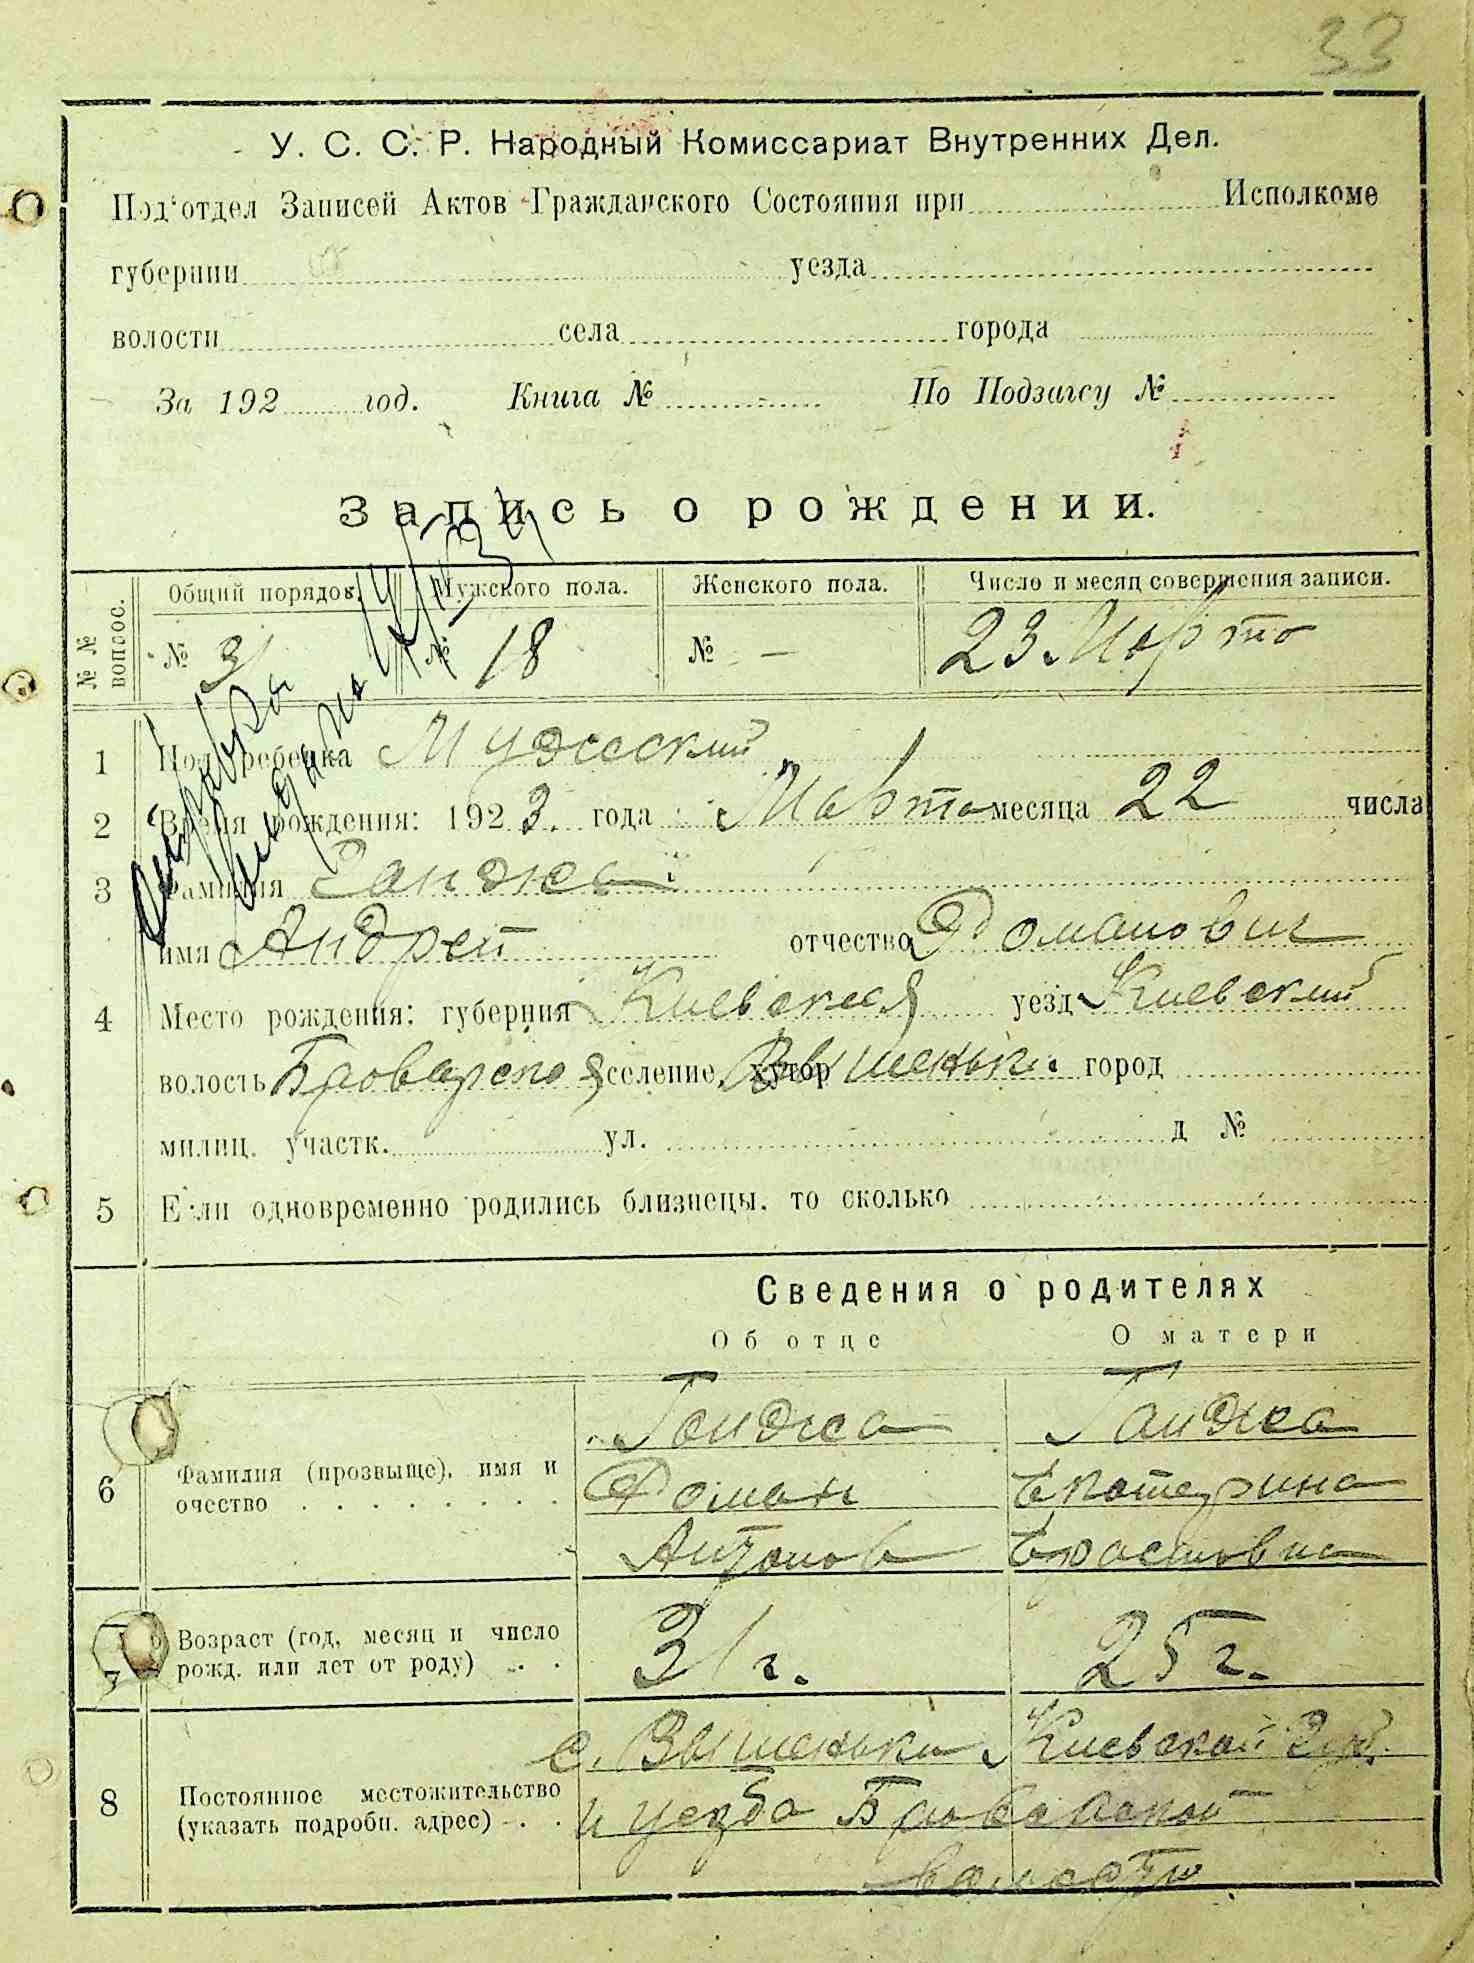 33
У. С. С. Р. Народный Комиссариат Внутренних Дел.
Под'отдел Записей Актов Гражданского Состояния при Исполкоме
губернии уезда
волости села города
За 192 год. Книга № По Подзагсу №
Запись о рождении.
№№ вопрос. Общий порядок. Мужского пола. Женского пола. Число и месяц совершения записи.
№ 31 № 18 № — 23 Марта
Справка
выдана
1 Пол ребенка Мужеский
2 Время рождения: 1923. года Марта месяца 22 числа
3 Фамилия Ганджа
имя Андрей отчество Романович
4 Место рождения: губерния Киевская уезд Киевский
волость Броварская селение, хутор Вышеньки. город
милиц. участк. ул. д №
5 Если одновременно родились близнецы. то сколько
Сведения о родителях
Об отце О матери
Ганджа Ганджа
6 Фамилия (прозвыще), имя и
очество Роман Екатерина
Антонов Ерастовна
7 Возраст (год, месяц и число
рожд. или лет от роду) 31 г. 25 г.
с. Вышеньки, Киевской Губ.
8 Постоянное местожительство
(указать подробн. адрес) и уезда Броварской
волости